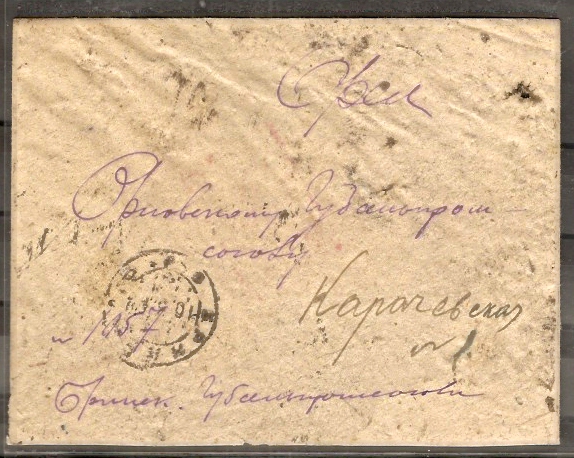 Орел
Орловскому Губсельпром
союзу
Карачевская
№ 1
№ 1157
Брянск. Губсельпромсоюза